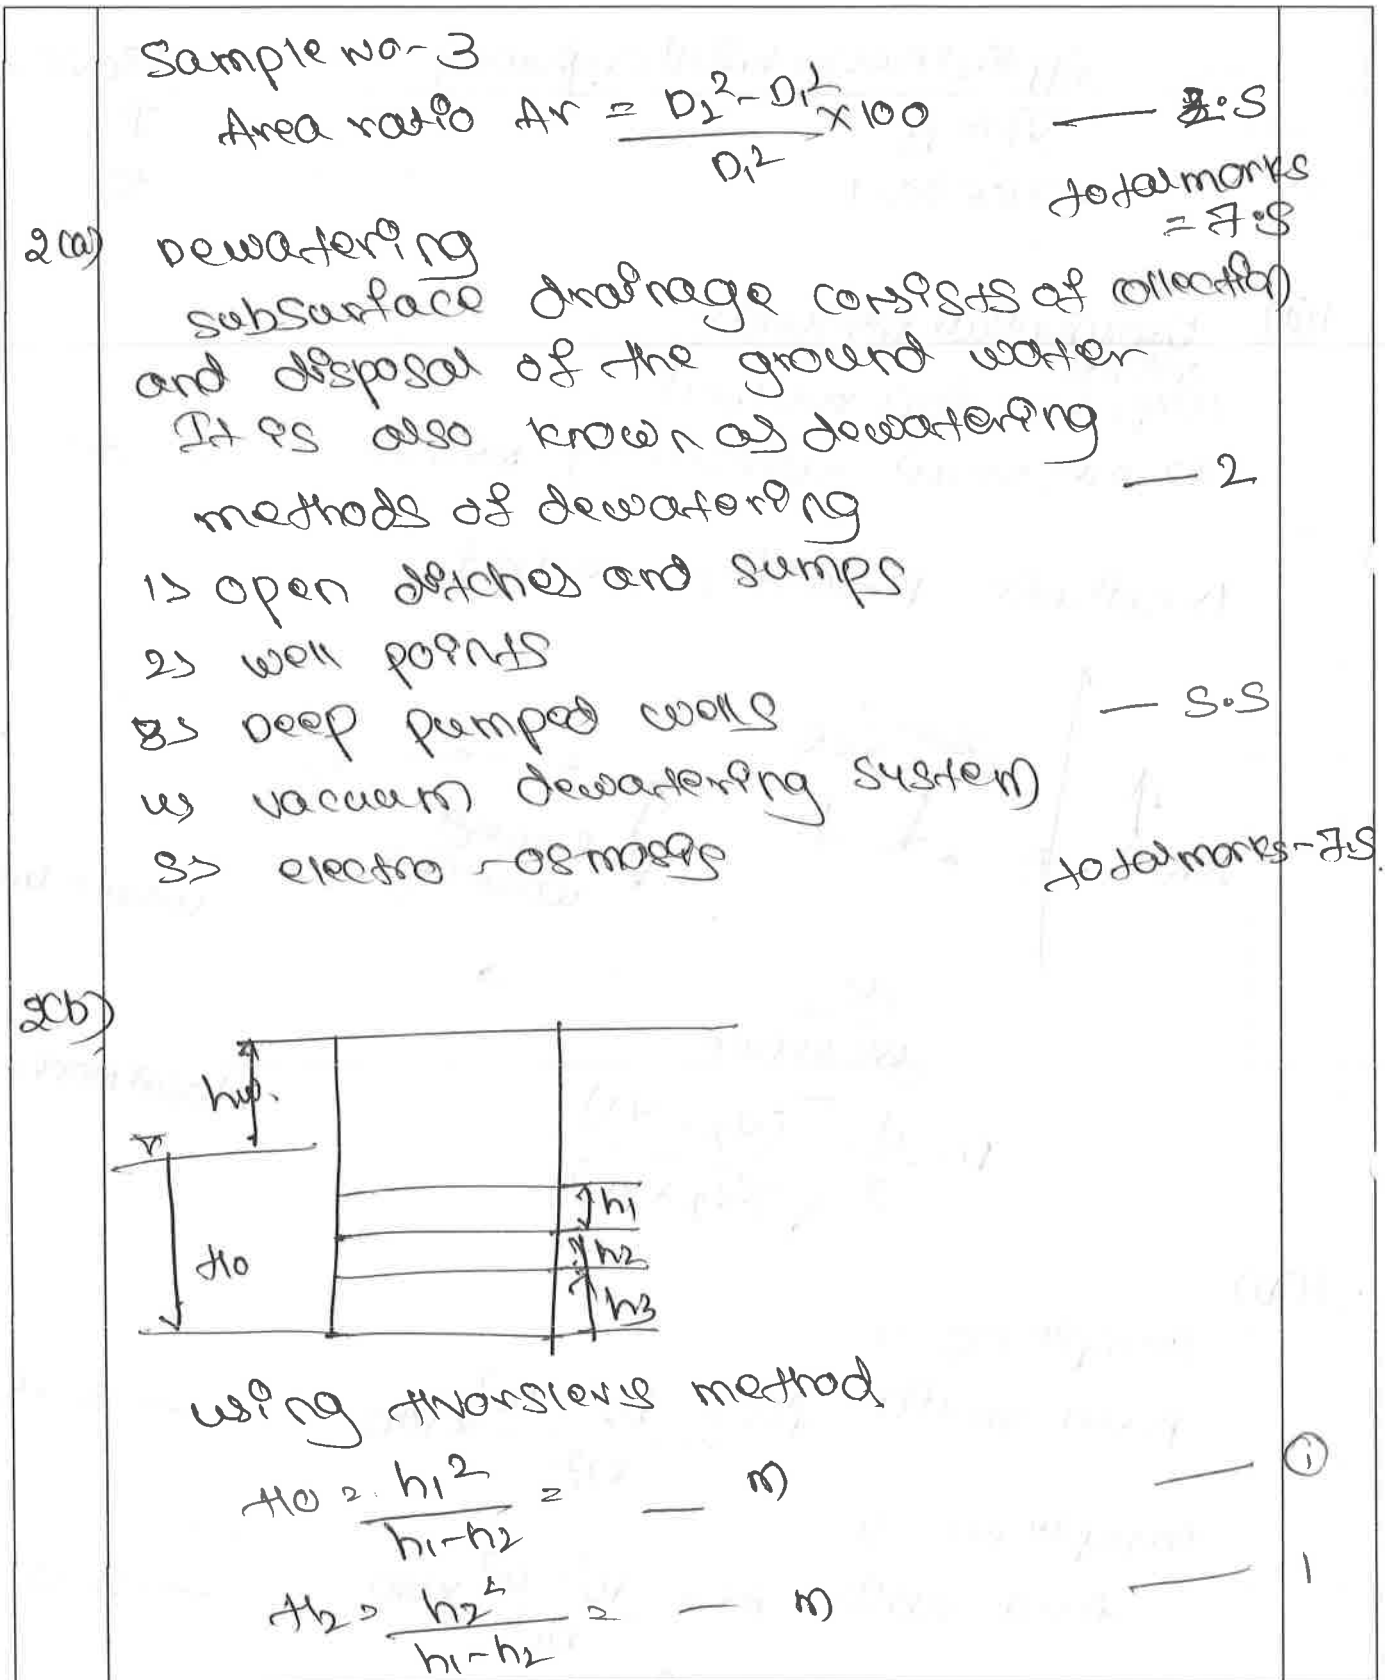 Sample No-3
Area ratio Ar = D2² - D1² / D1² × 100 — 2.5
total marks
= 7.5
2(a) Dewatering
subsurface drainage consists of collection
and disposal of the ground water
It is also known as dewatering
— 2
methods of dewatering
1> open ditches and sumps
2> well points
3> Deep pumped wells — 5.5
4> vacuum dewatering system
5> electro-osmosis
total marks - 7.5
2(b)
hw.
H0
h1
h2
h3
using Hvorslevs method
H0 = h1² / h1-h2 = — m — 1
H2 = h2² / h1-h2 = — m — 1